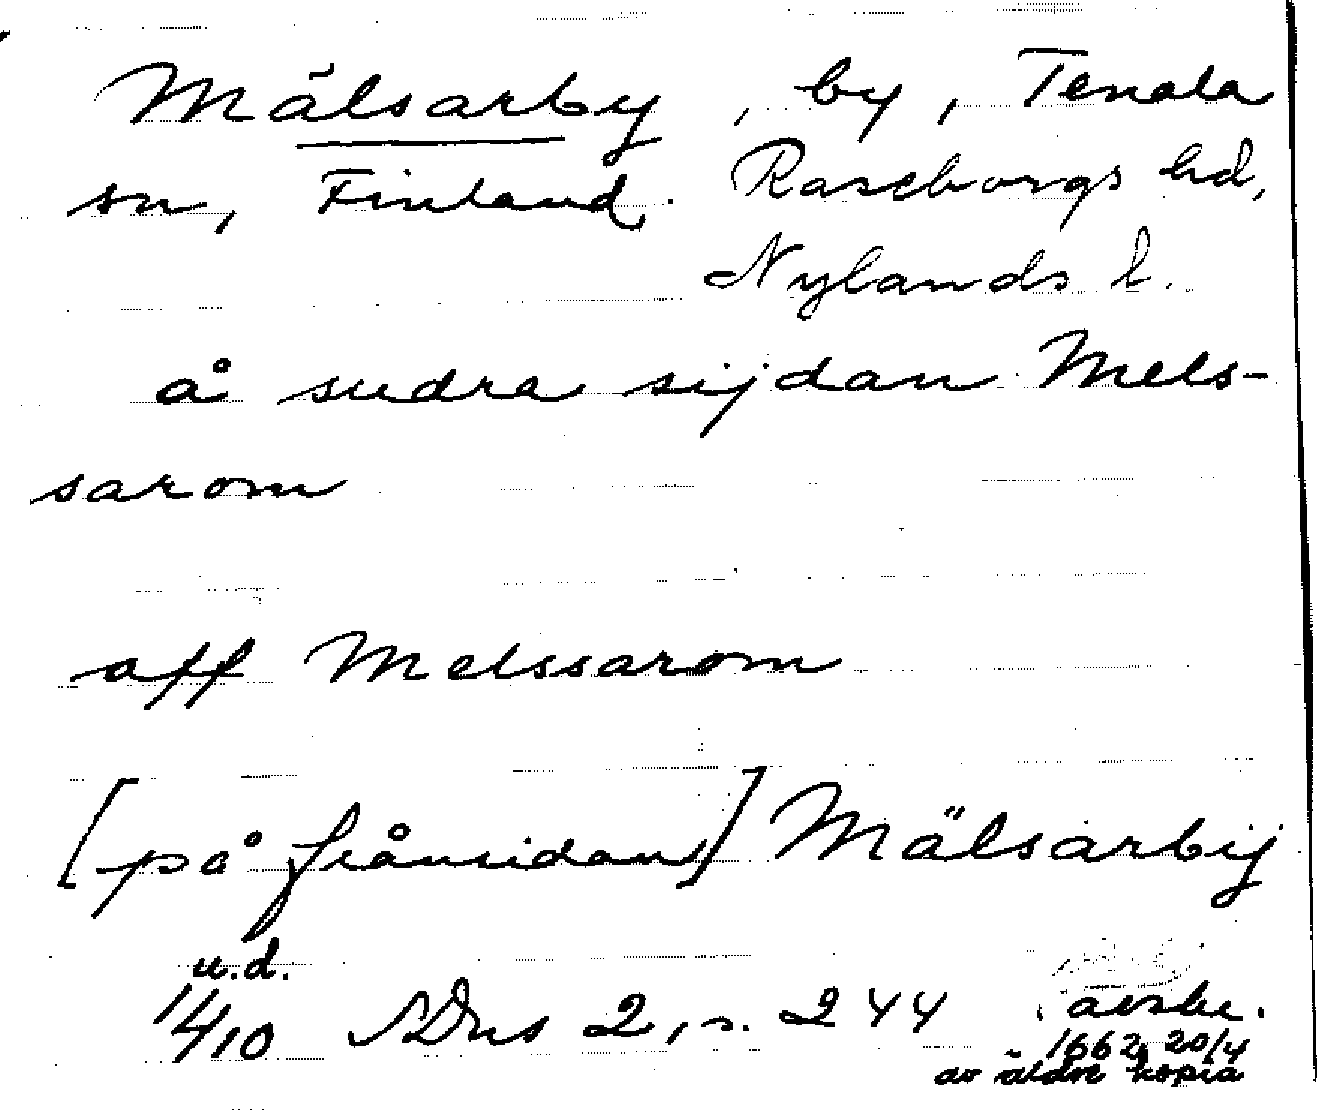 Mälsarby, by, Tenala
sn, Finland. Raseborgs hd,
Nylands l.
å sudra sijdan Mels-
sarom
aff Melssarom
[på frånsidan] Mälsarbÿ
u.d.
14/10 SDns 2, s. 244 avskr.
1662 20/4
av äldre kopia